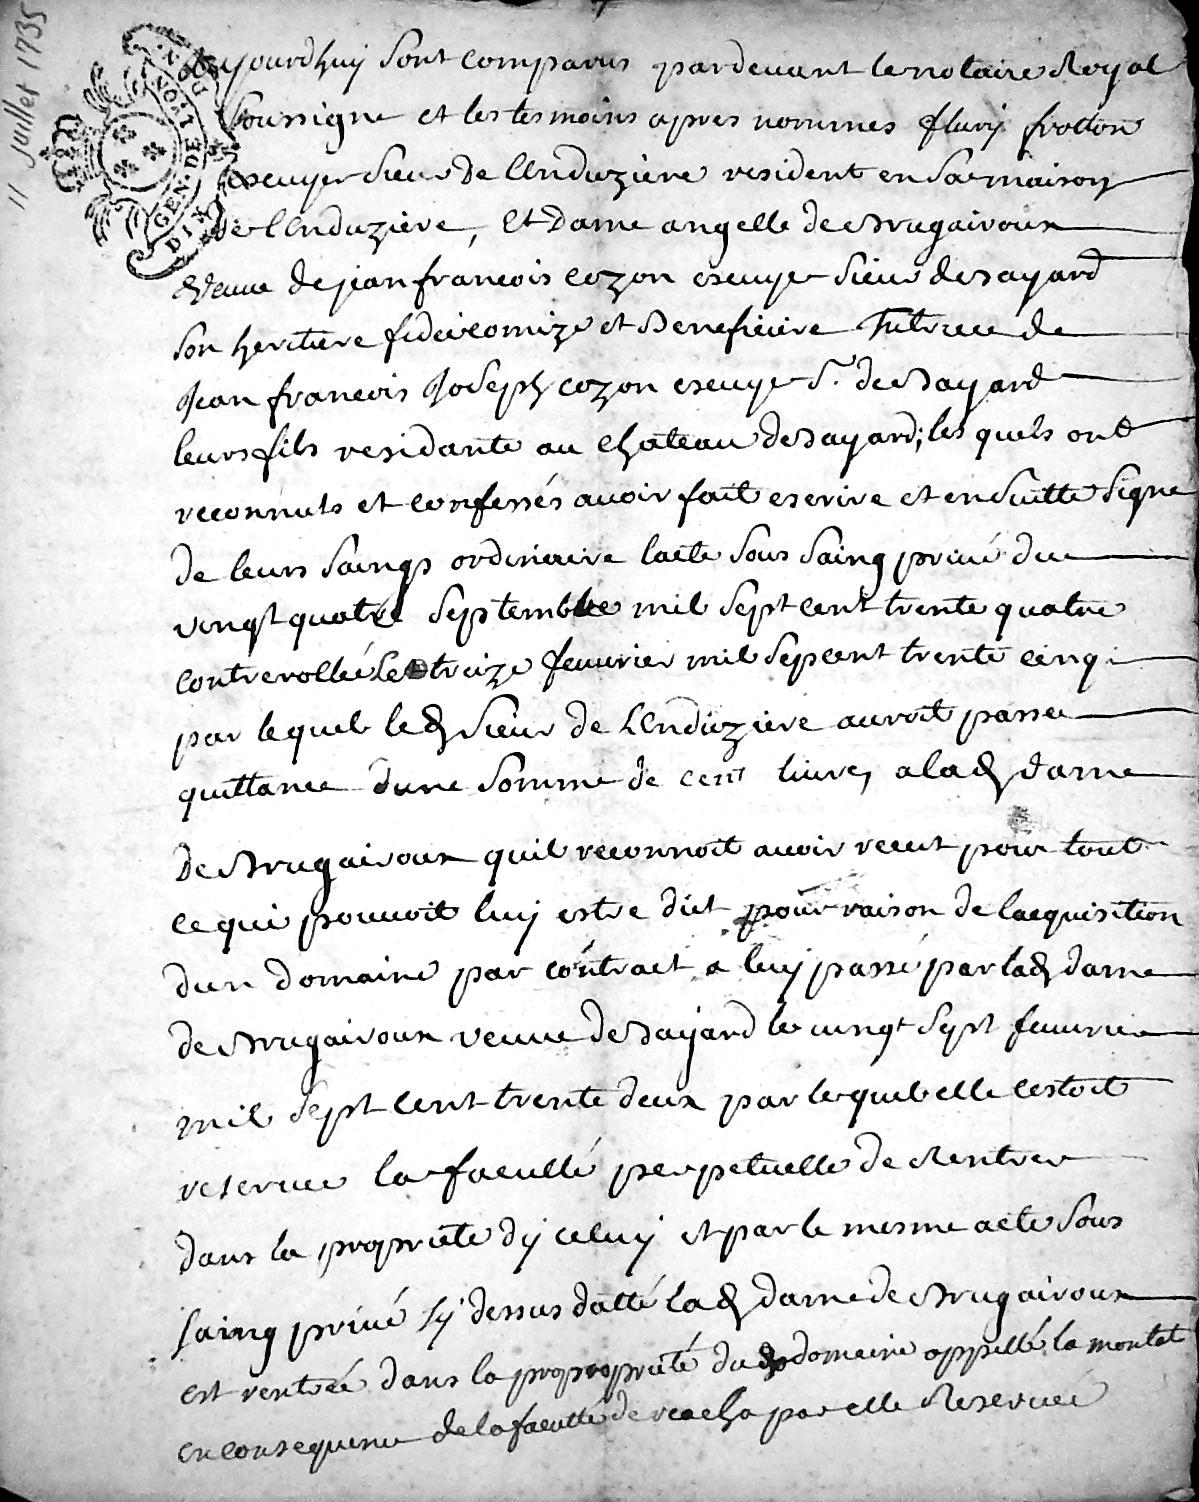 11 Juillet 1735
GEN. DE LYON.
DIX DEN.
Aujourdhuy sont comparus pardevant le notaire Royal
soussigne et les tesmoins apres nommes flury frotton
escuyer sieur de lenduziere resident en sa maison
de lenduziere, et Dame angelle de Brugairoux
veuve de jean francois cozon escuyer sieur de Bayard
son heritiere fideicomize et Beneficiere tutrice de
Jean francois Joseph cozon escuyer Sr. de Bayard
leurs fils residante au chateau de Bayard; les quels ont
reconnuts et confessés avoir fait escrire et ensuitte signe
de leurs saings ordinaire lacte sous saing privé du
vingt quatre septembre mil sept cent trente quatre
controrollée le treize feuvrier mil sepcent trente cinq
par lequel led sieur de lenduziere auroit passe
quittance dune somme de cent livres a lad dame
de Brugairoux quil reconnoit avoir recut pour tout
ce qui pouvoit luy estre dut pour raison de lacquisition
dun domaine par contract a luy passé par lad dame
de Brugairoux veuve de Bayard le vingt sept feuvrier
mil sept cent trente deux par lequel elle cestoit
reservee la facullé perpetuelle de Rentrer
dans la propriete dy celuy et par le mesme acte sous
saing privé sy dessus datté lad dame de Brugairoux
est rentrée dans la proproprieté dud domaine appellé la montat
en consequence de la faculté de reacha par elle Reservée